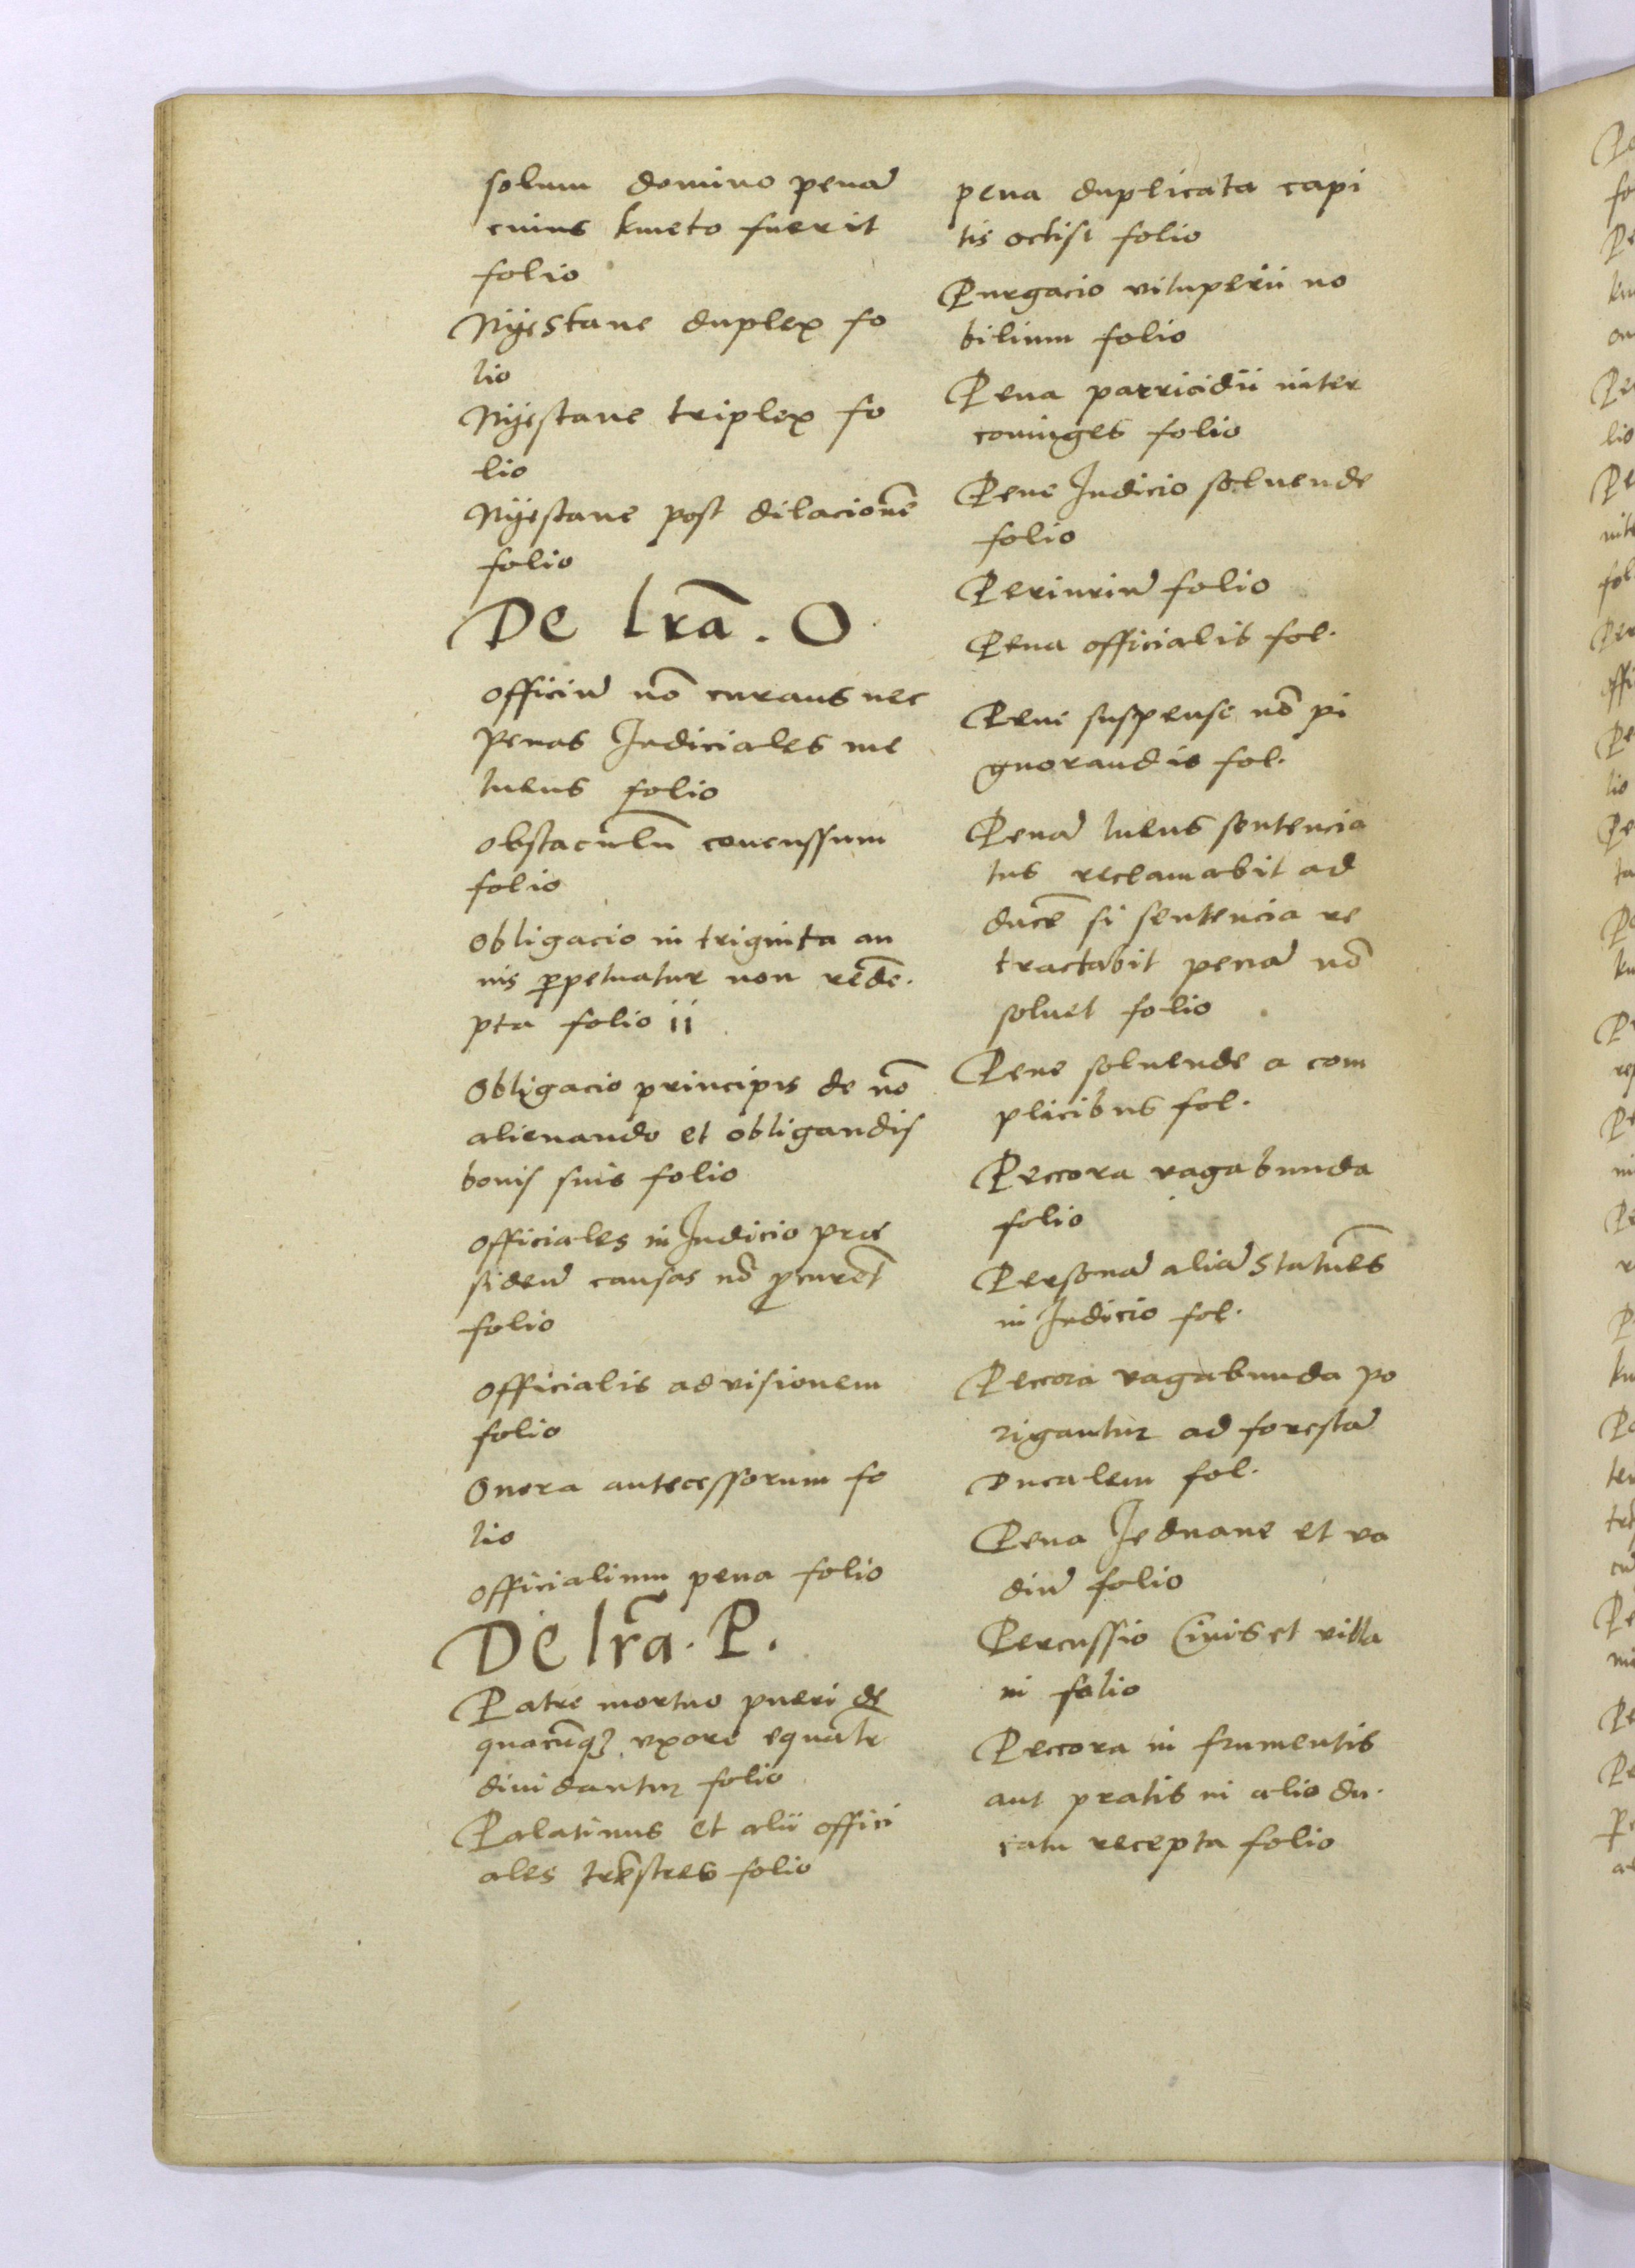 solum domino penã
cuius kmeto fuerit
folio
Nyestane duplex fo
lio
Nyestane triplex fo
lio
Nyestane post dilacionẽ
folio
De lrã . O
officiũ nõ curans nec
penas Judiciales me
tuens folio
obstaculũ concussum
folio
obligacio in triginta an
nis ꝑpetuatur non redẽ.
pta folio ii
obligacio principis de nõ
alienando et obligandis
bonis suis folio
officiales in Judicio pre
sidẽn causas nõ ꝓcurẽt
folio
officialis ad visionem
folio
onera antecessorum fo
lio
officialium pena folio
De lrã . P.
Patre mortuo pueri de
quacũqȝ vxore equalr
diuidantur folio
Palatinus et alii offici
ales trrestres folio
pena duplicata capi
tis occisi folio
Purgacio vituperii no
bilium folio
Pena parricidii inter
coniuges folio
Pene Judicio soluende
folio
Periuriũ folio
Pena officialis fol.
Pene suspense nõ pi
gnorandis fol.
Penã luens sentencia
tus reclamabit ad
ducẽ si sentencia re
tractabit penã nõ
soluet folio
Pene soluende a com
plicibus fol.
Peccora vagabunda
folio
Personã aliã statuẽs
in Judicio fol.
Peccora vagabunda po
rigantur ad forestã
ducalem fol.
Pena Jednane et va
diũ folio
Percussio Ciuis et villa
ni folio
Peccora in frumentis
aut pratis in alio du.
catu recepta folio